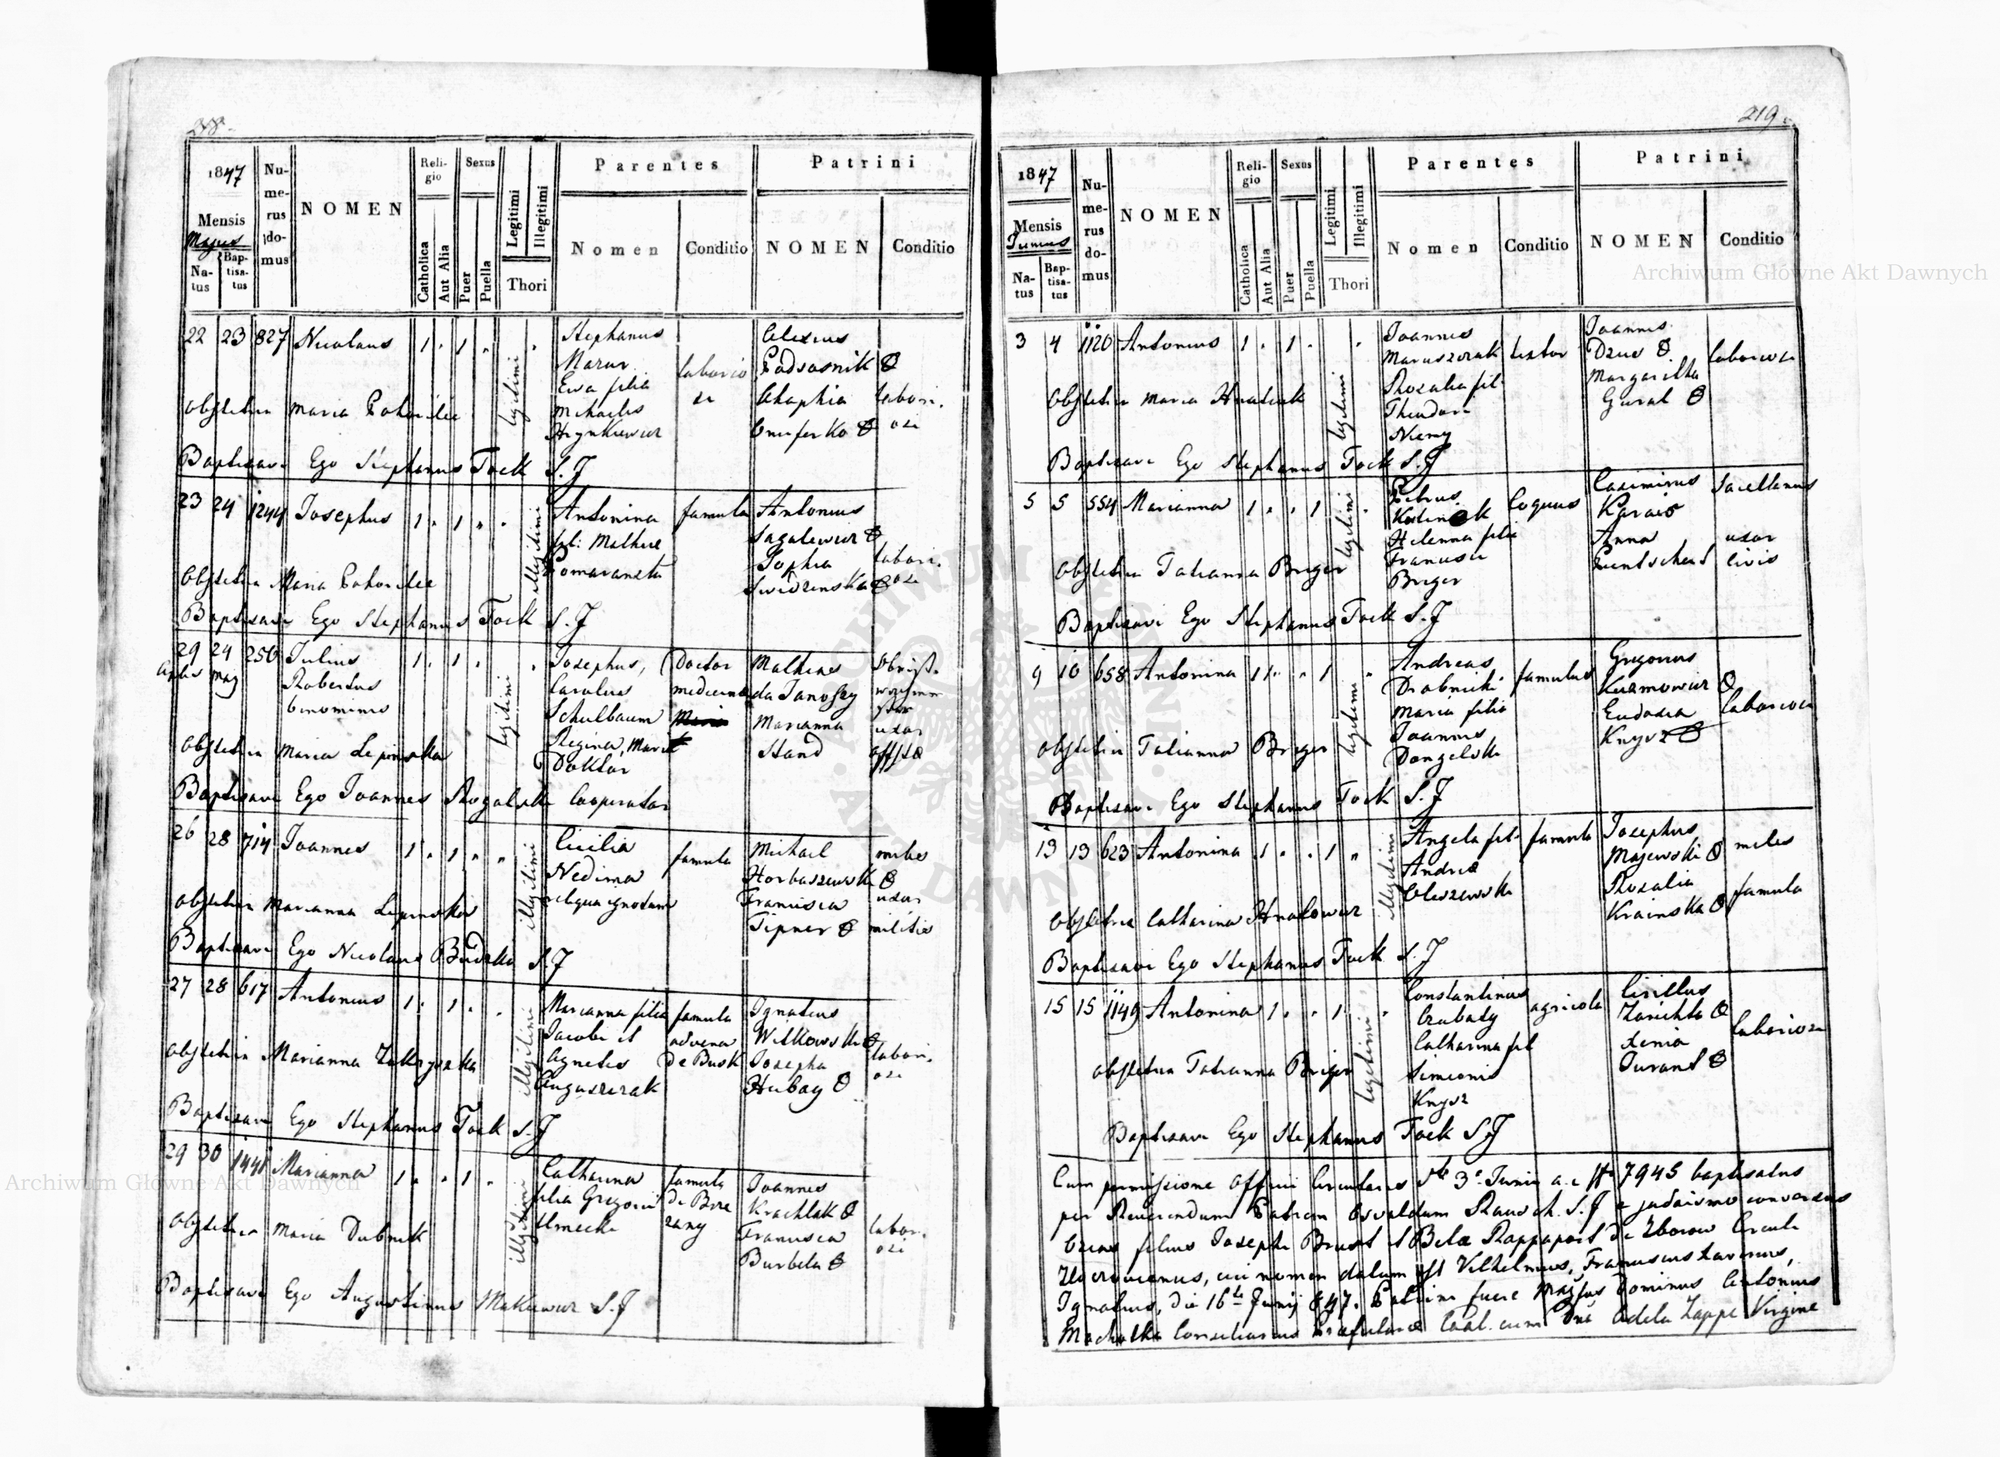 218.
1847
Mensis
Majus
Na-
tus
Bap-
tisa-
tus
Nu-
me-
rus
do-
mus
NOMEN
Reli-
gio
Catholica
Aut Alia
Sexus
Puer
Puella
Legitimi
Illegitimi
Thori
Parentes
Nomen
Conditio
Patrini
NOMEN
Conditio
22 23 827 Nicolaus 1 . 1 . legitimi . Stephanus
Mazur
Ewa filia
Michaelis
Hrynkiewicz
laborio
si
Alexius
Podsosnik
Ahaphia
Onuferko
labori.
osi
Obstetrix Maria
Baptisavi Ego Stephanus Tock S.J
23 24 1244 Josephus 1 . 1 . . illegitimi Antonina
fil: Mathiae
Pomaranska
famula
Antonius
Sagalewicz
Sophia
Swidzinska
labori.
osi
Obstetrix Maria
Baptisavi Ego Stephanus Tock S.J
29 24 250 Julius
May
Robertus
binominis
1 . 1 . legitimi . Josephus,
Carolus
Schulbaum
Regina, Maria
Doktor
Doctor
medicinae
Mathias
da Janossy
Marianna
Stand
uxor
Obstetrix Maria Lepinska
Baptisavi Ego Joannes Rogalski Cooperator
26 28 714 Joannes 1 . 1 . . illegitimi Cicilia
Nedima
reliqua ignotum
famula
Michael
Horbaszewski
Francisca
Tipner
miles
uxor
militis
Obstetrix Marianna Lepinska
Baptisavi Ego Nicolaus Budzka S.J
27 28 617 Antonius 1 . 1 . . illegitimi Marianna filia
Jacobi et
Agnetis
Augustzak
famula
advena
de Busk
Ignatius
Witkowski
Josepha
Hubay
labori.
osi
Obstetrix Marianna
Baptisavi Ego Stephanus Tock S.J
29 30 1441 Marianna 1 . . 1 . illegitimi Catharina
filia Gregorii
famula
de Bere
zany
Joannes
Krachlak
Francisca
Burbela
labori.
osi
Obstetrix Maria Dubnik
Baptisavi Ego Augustinus Makiewicz S.J
219
1847
Mensis
Junius
Na-
tus
Bap-
tisa-
tus
Nu-
me-
rus
do-
mus
NOMEN
Reli-
gio
Catholica
Aut Alia
Sexus
Puer
Puella
Legitimi
Illegitimi
Thori
Parentes
Nomen
Conditio
Patrini
NOMEN
Conditio
3 4 1120 Antonius 1 . 1 . legitimi . Joannes
Maruszczak
Rozalia fil.
Theodori
Niemy
textor
Joannes
Dzus
Margaritha
Gural
laboriosi
Obstetrix Maria Hnatiuk
Baptisavi Ego Stephanus Tock S.J
5 5 554 Marianna 1 . . 1 legitimi . Petrus
Helenna filia
Francisci
Bryger
Coquus
Casimirus
Karais
Anna
Sacellanus
uxor
civis
Obstetrix Tatianna Bryger
Baptisavi Ego Stephanus Tock S.J
9 10 658 Antonina 1 . . 1 legitimi . Andreas
Drabnicki
Maria filia
Joannis
Dongelski
famulus
Gregorius
Kuzmowicz
Eudoxia
Knysz
laboriosi
Obstetrix Tatianna Bryger
Baptisavi Ego Stephanus Tock S.J
13 13 623 Antonina 1 . . 1 . illegitimi Angela fil.
Andreae
Oleszewska
famula
Josephus
Majewski
Rozalia
Krainska
miles
famula
Obstetrix Catharina Hnatowicz
Baptisavi Ego Stephanus Tock S.J
15 15 1149 Antonina 1 . . 1 legitimi . Constantinus
Czubaty
Catharina fil
Simeonis
Knysz
agricola
Cirillus
Zarichta
Xenia
Durant
laboriosi
Obstetrix Tatianna Bryger
Baptisavi Ego Stephanus Tock S.J
Cum permissione Officii Circularis de 3. Junii a. c. N 7945 baptisatus
per Reverendum Patrem Osvaldum Rausch S.J e judaismo conversus
Ozias filius Josephi Brust et Bela Rappaport de Zborow Circuli
Zloczoviensis, cui nomen datum est Vilhelmus, Franciscus Xaverius,
Ignatius, die 16ta Junij 847. Patrini fuere Dominus Antonius
Machatka Consiliarius cum Adela Zappe Virgine
Archiwum Główne Akt Dawnych
Archiwum Główne Akt Dawnych
ARCHIWUM GŁÓWNE AKT DAWNYCH